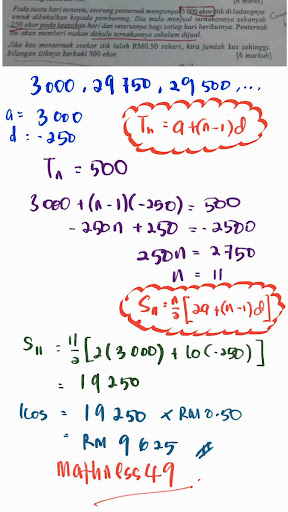 Pada suatu hari tertentu, seorang penternak mempunyai 3 000 ekor itik di ladangnya
untuk dibekalkan kepada pemborong. Dia mula menjual ternakannya sebanyak
250 ekor pada keesokan hari dan seterusnya bagi setiap hari berikutnya. Penternak
itu akan memberi makan dahulu ternakannya sebelum dijual.
Jika kos menternak seekor itik ialah RM0.50 sehari, kira jumlah kos sehingga
bilangan itiknya berbaki 500 ekor.
[6 markah]
3000, 29750, 29500, ...
a = 3000
d = -250
Tn = a+(n-1)d
Tn = 500
3000 + (n-1)(-250) = 500
-250n + 250 = -2500
250n = 2750
n = 11
Sn = n/2 [2a+(n-1)d]
S11 = 11/2 [2(3000) + 10(-250)]
= 19250
kos = 19250 × RM0.50
= RM 9625
mathness49